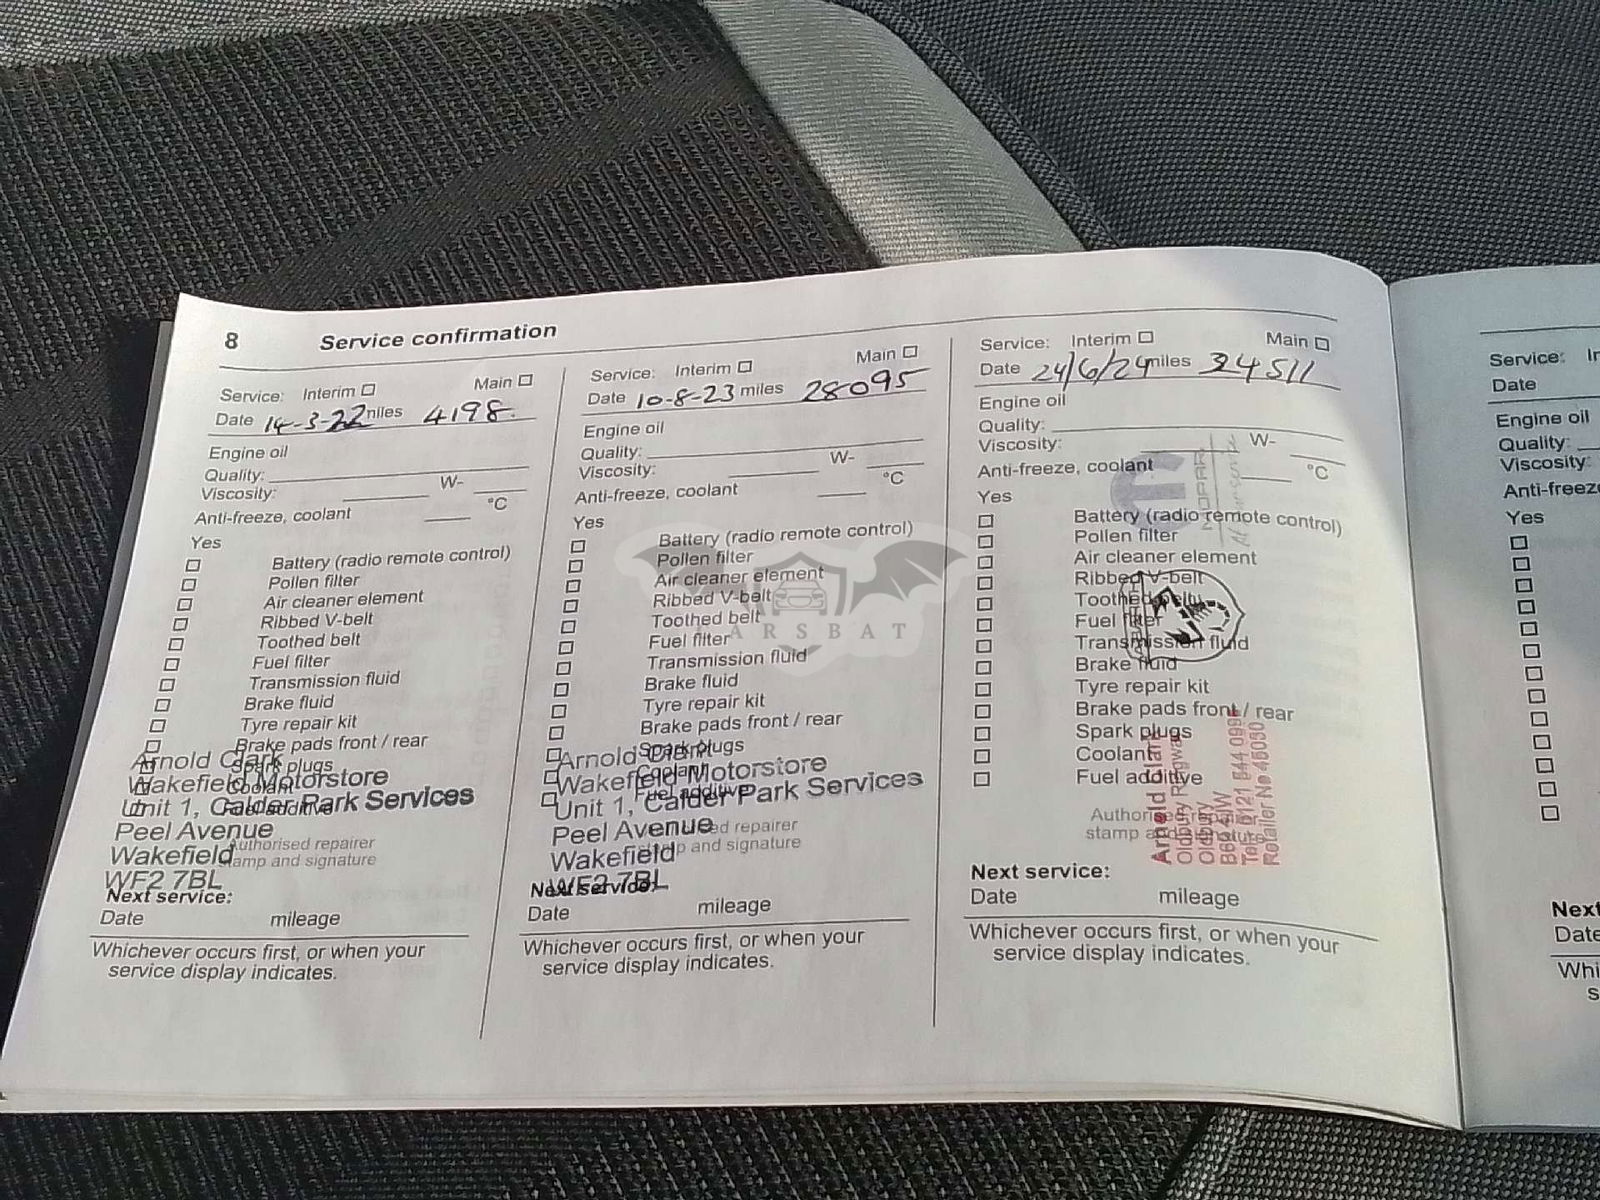 8 Service confirmation
Service: Interim Main
Date 14-3-22 miles 4198.
Engine oil
Quality:
Viscosity: W-
Anti-freeze, coolant °C
Yes
Battery (radio remote control)
Pollen filter
Air cleaner element
Ribbed V-belt
Toothed belt
Fuel filter
Transmission fluid
Brake fluid
Tyre repair kit
Brake pads front / rear
Spark plugs
Coolant
Fuel additive
Arnold Clark
Wakefield Motorstore
Unit 1, Calder Park Services
Peel Avenue
Wakefield
WF2 7BL
Authorised repairer
stamp and signature
Next service:
Date mileage
Whichever occurs first, or when your
service display indicates.
Service: Interim Main
Date 10-8-23 miles 28095
Engine oil
Quality:
Viscosity: W-
Anti-freeze, coolant °C
Yes
Battery (radio remote control)
Pollen filter
Air cleaner element
Ribbed V-belt
Toothed belt
Fuel filter
Transmission fluid
Brake fluid
Tyre repair kit
Brake pads front / rear
Spark plugs
Coolant
Fuel additive
Arnold Clark
Wakefield Motorstore
Unit 1, Calder Park Services
Peel Avenue
Wakefield
WF2 7BL
repairer
and signature
Next service:
Date mileage
Whichever occurs first, or when your
service display indicates.
Service: Interim Main
Date 24/6/24 miles 34511
Engine oil
Quality:
Viscosity: W-
Anti-freeze, coolant °C
Yes
Battery (radio remote control)
Pollen filter
Air cleaner element
Ribbed V-belt
Toothed belt
Fuel filter
Transmission fluid
Brake fluid
Tyre repair kit
Brake pads front / rear
Spark plugs
Coolant
Fuel additive
MOPAR
Arnold Clark
Oldbury Ringway
Oldbury
Authorised repairer
stamp
Next service:
Date mileage
Whichever occurs first, or when your
service display indicates.
Service:
Date
Engine oil
Quality:
Viscosity:
Anti-freeze
Yes
Next
Date
Whi
s
ARSBAT